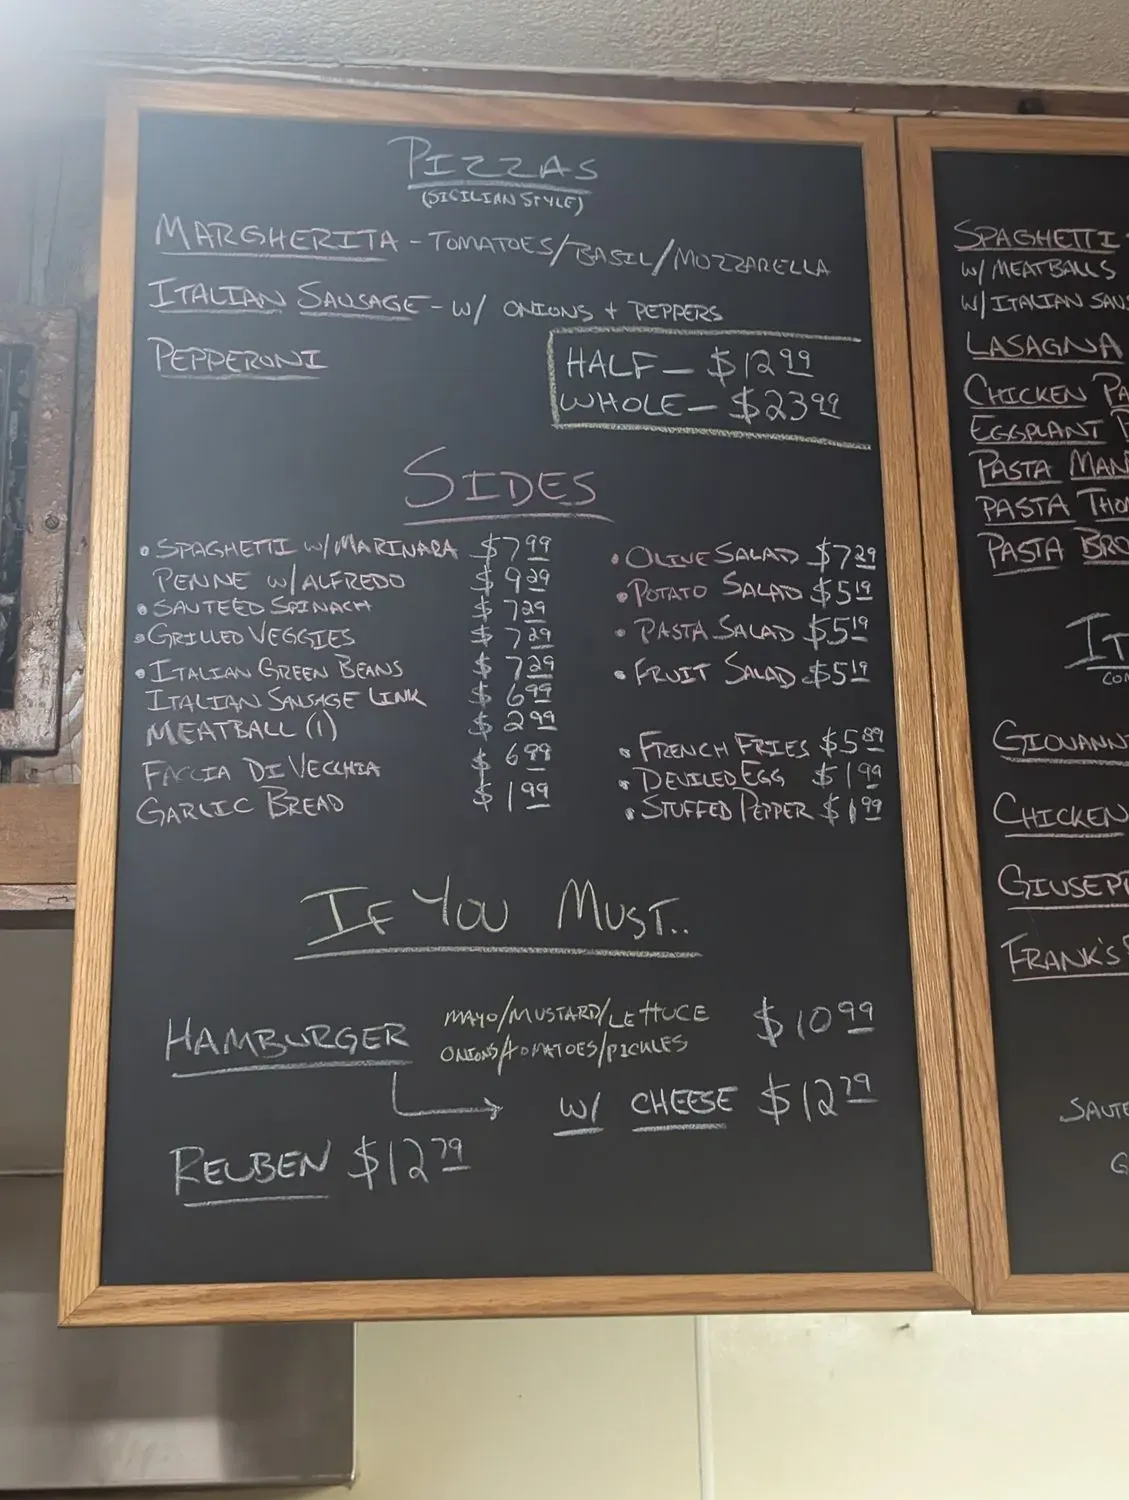 PIZZAS
(SICILIAN STYLE)
MARGHERITA - TOMATOES/BASIL/MOZZARELLA
ITALIAN SAUSAGE - W/ ONIONS + PEPPERS
PEPPERONI
HALF - $12.99
WHOLE - $23.99
SIDES
• SPAGHETTI W/MARINARA $7.99
PENNE W/ALFREDO $9.29
• SAUTEED SPINACH $7.29
• GRILLED VEGGIES $7.29
• ITALIAN GREEN BEANS $7.29
ITALIAN SAUSAGE LINK $6.99
MEATBALL (1) $2.99
FACCIA DI VECCHIA $6.99
GARLIC BREAD $1.99
• OLIVE SALAD $7.29
• POTATO SALAD $5.19
• PASTA SALAD $5.19
• FRUIT SALAD $5.19
• FRENCH FRIES $5.89
• DEVILED EGG $1.99
• STUFFED PEPPER $1.99
IF YOU MUST..
HAMBURGER MAYO/MUSTARD/LETTUCE $10.99
ONIONS/TOMATOES/PICKLES
W/ CHEESE $12.79
REUBEN $12.79
SPAGHETTI
W/ MEATBALLS
W/ ITALIAN
LASAGNA
CHICKEN
EGGPLANT
PASTA
PASTA
PASTA
GIOVANNI
CHICKEN
FRANK'S